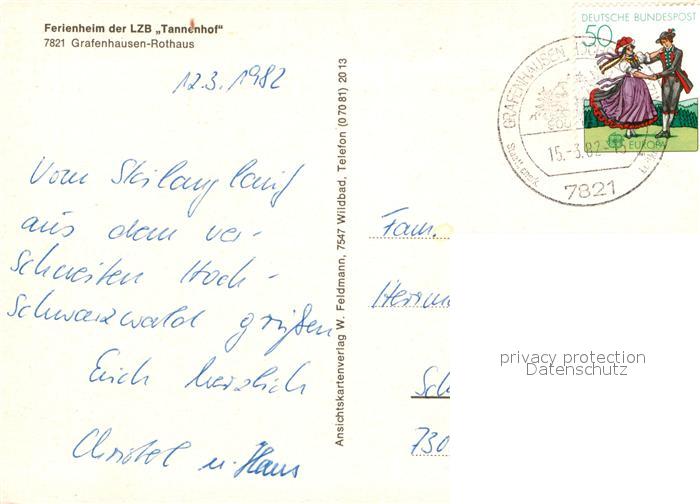 Ferienheim der LZB „Tannenhof“
7821 Grafenhausen-Rothaus
12.3.1982
Vom Skilanglauf
aus dem ver-
schneiten Hoch-
schwarzwald grüßen
Euch herzlich
Christel u. Hans
Ansichtskartenverlag W. Feldmann, 7547 Wildbad, Telefon (070 81) 20 13
DEUTSCHE BUNDESPOST
50
EUROPA
GRAFENHAUSEN
15.-3.82-15
7821
Fam.
Herrm
Sch
730
privacy protection
Datenschutz